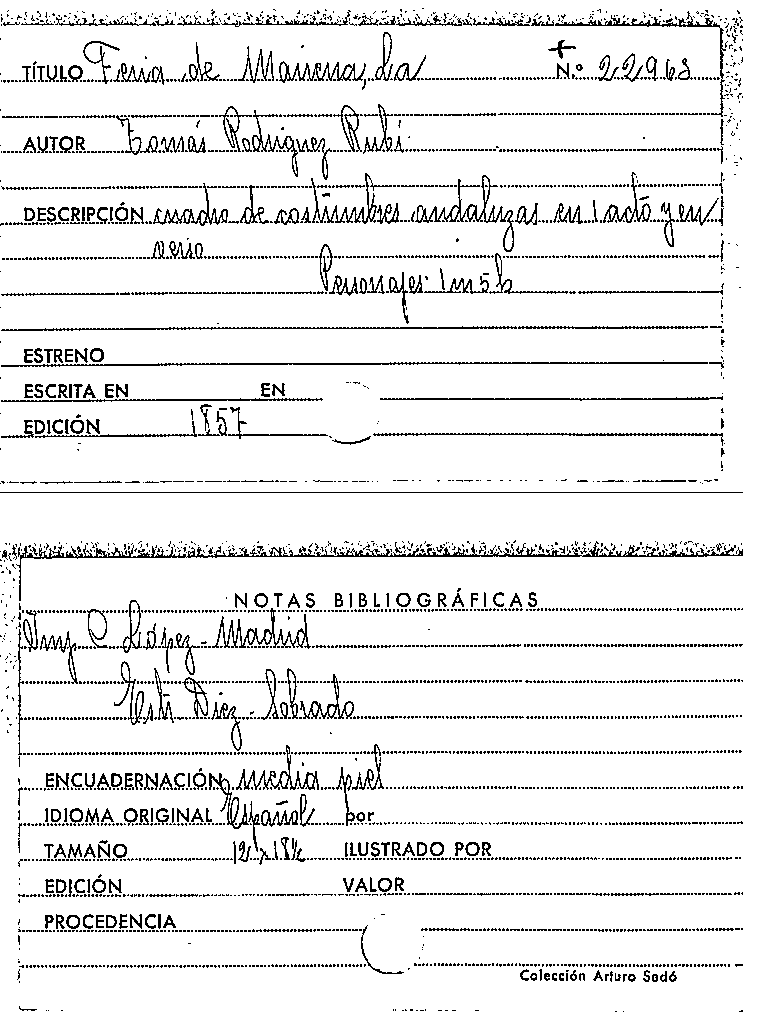 TÍTULO Feria de Mairena, La N.º 22963
AUTOR Tomás Rodriguez Rubí
DESCRIPCIÓN cuadro de costumbres andaluzas en 1 acto y en
verso
Personajes: 1m 5h
ESTRENO
ESCRITA EN EN
EDICIÓN 1857
NOTAS BIBLIOGRÁFICAS
Imp C. López - Madrid
Estr. Diez - Sobrado
ENCUADERNACIÓN media piel
IDIOMA ORIGINAL Español por
TAMAÑO ILUSTRADO POR
EDICIÓN VALOR
PROCEDENCIA
Colección Arturo Sedó